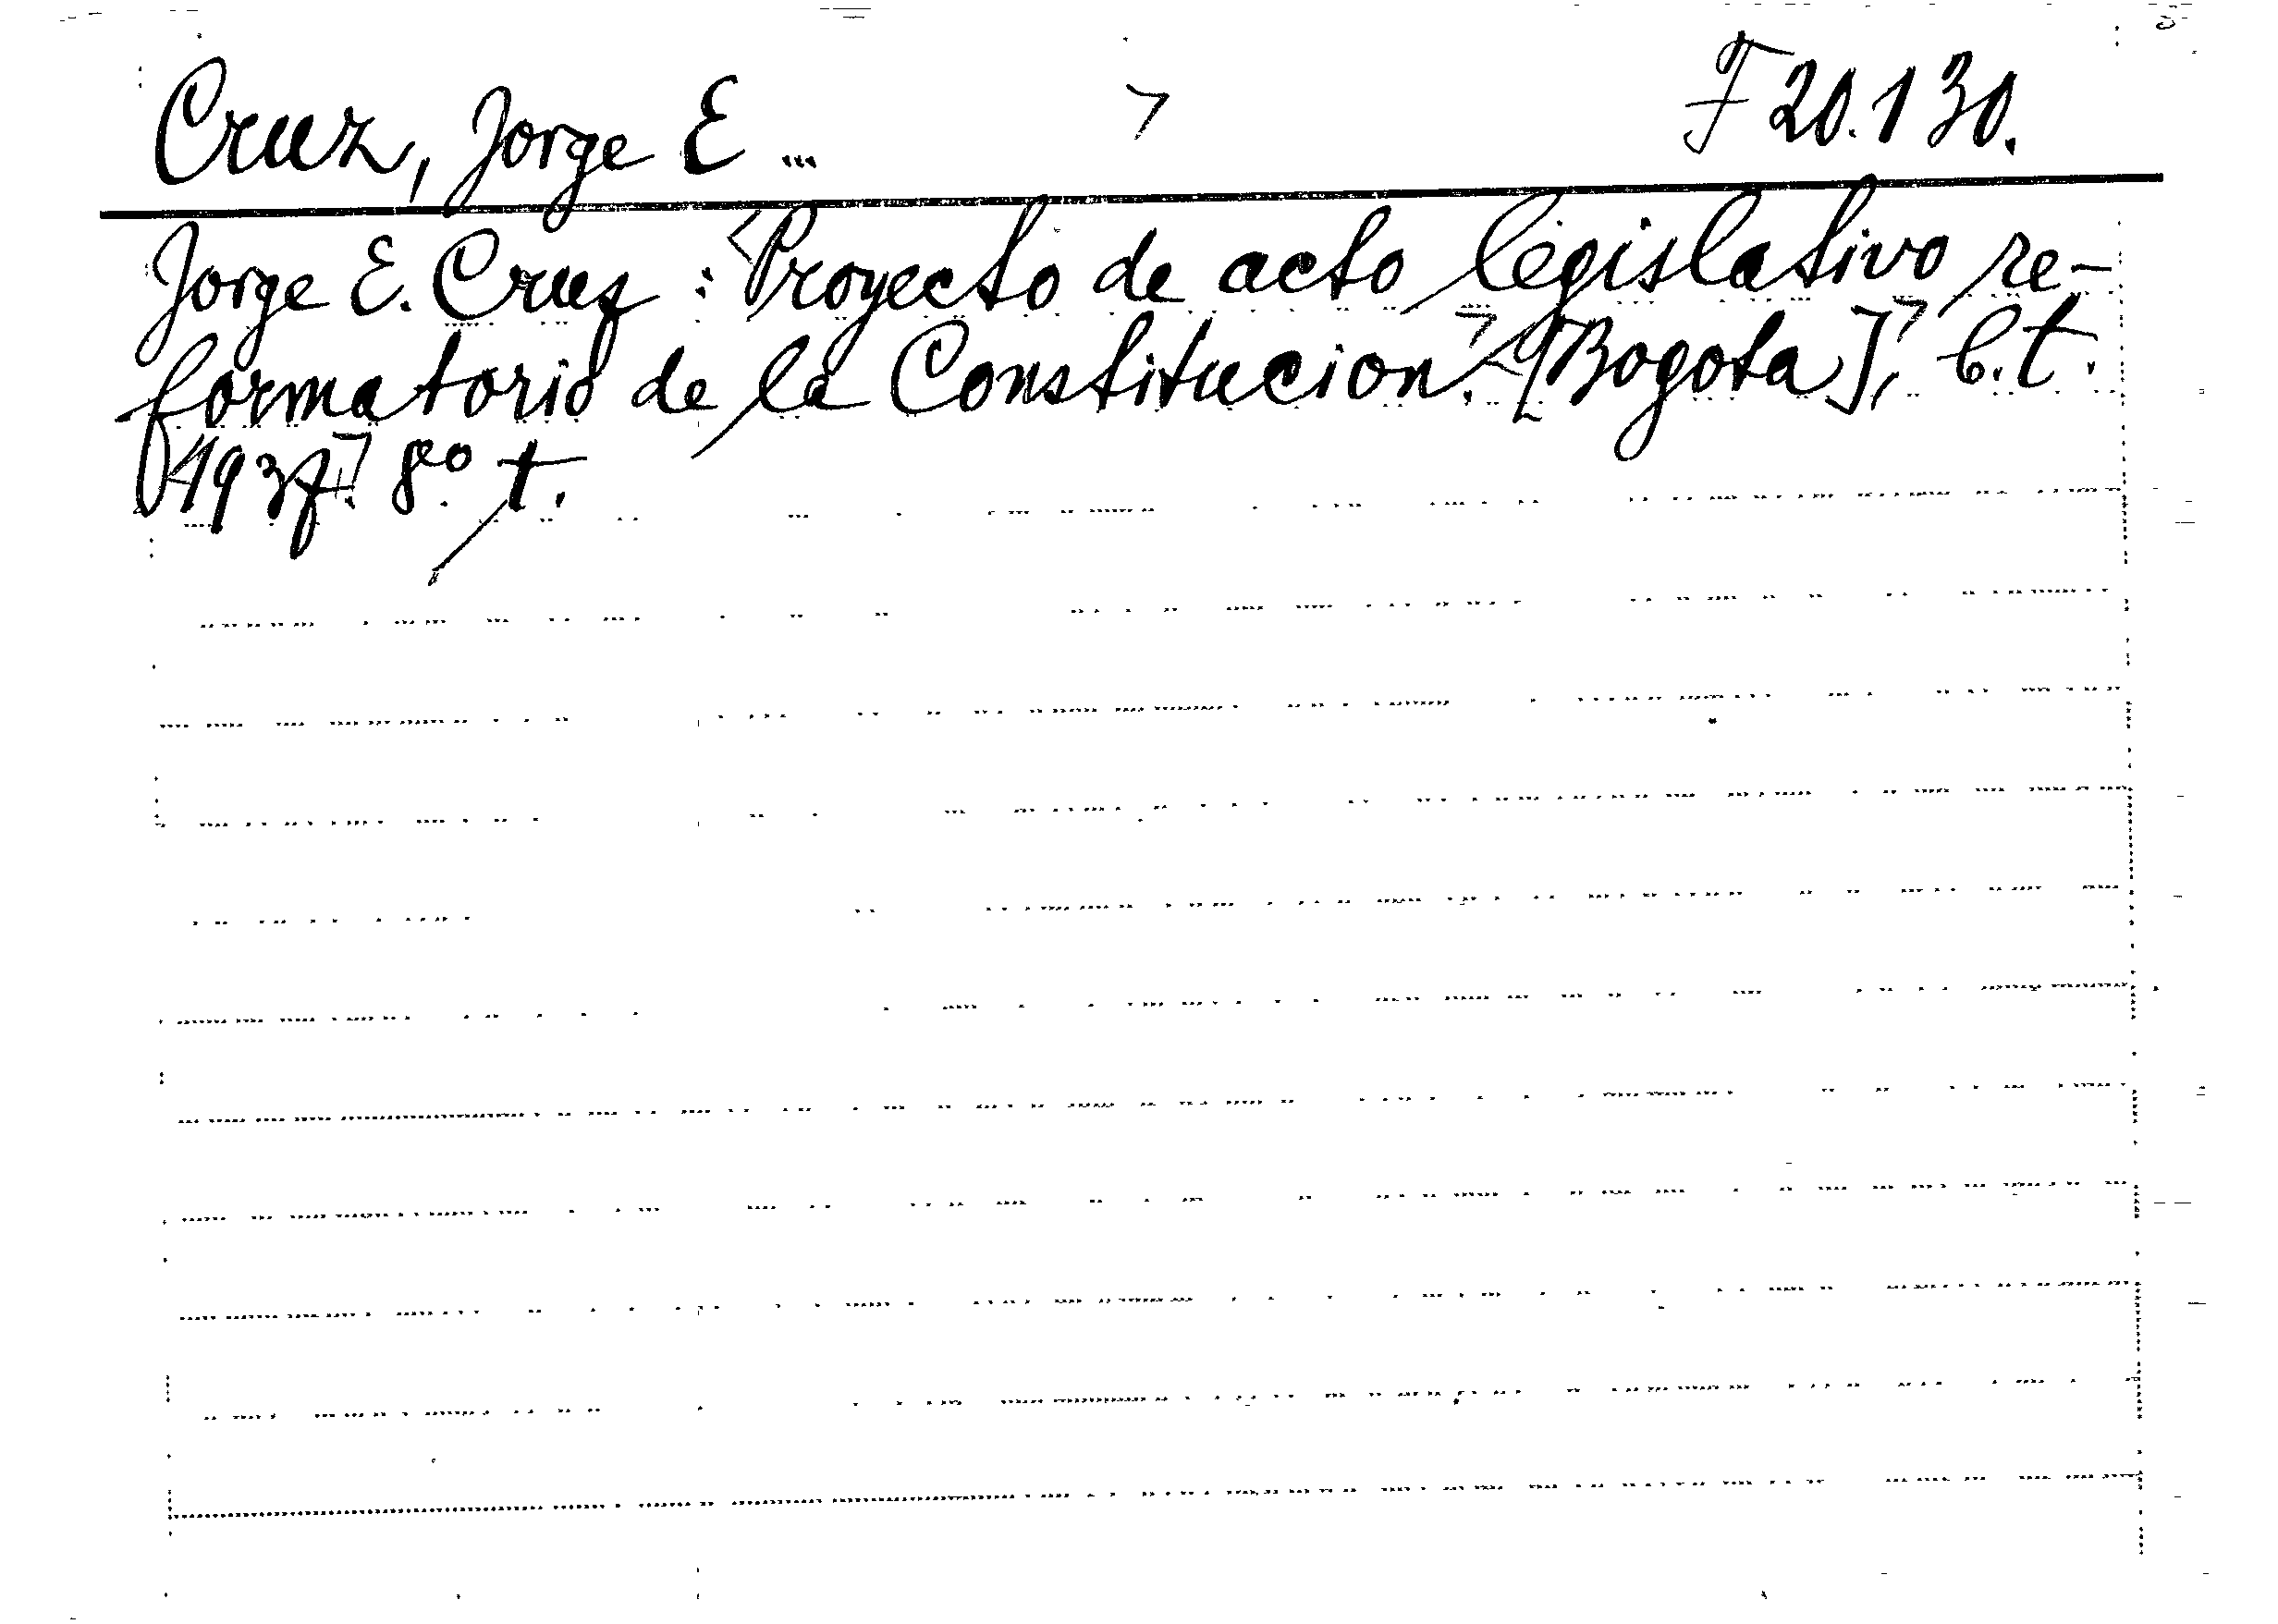 Cruz, Jorge E... F 20.130.
Jorge E. Cruz : Proyecto de acto legislativo re-
formatorio de la Constitucion. [Bogota], b.t.
1937. 8° t.